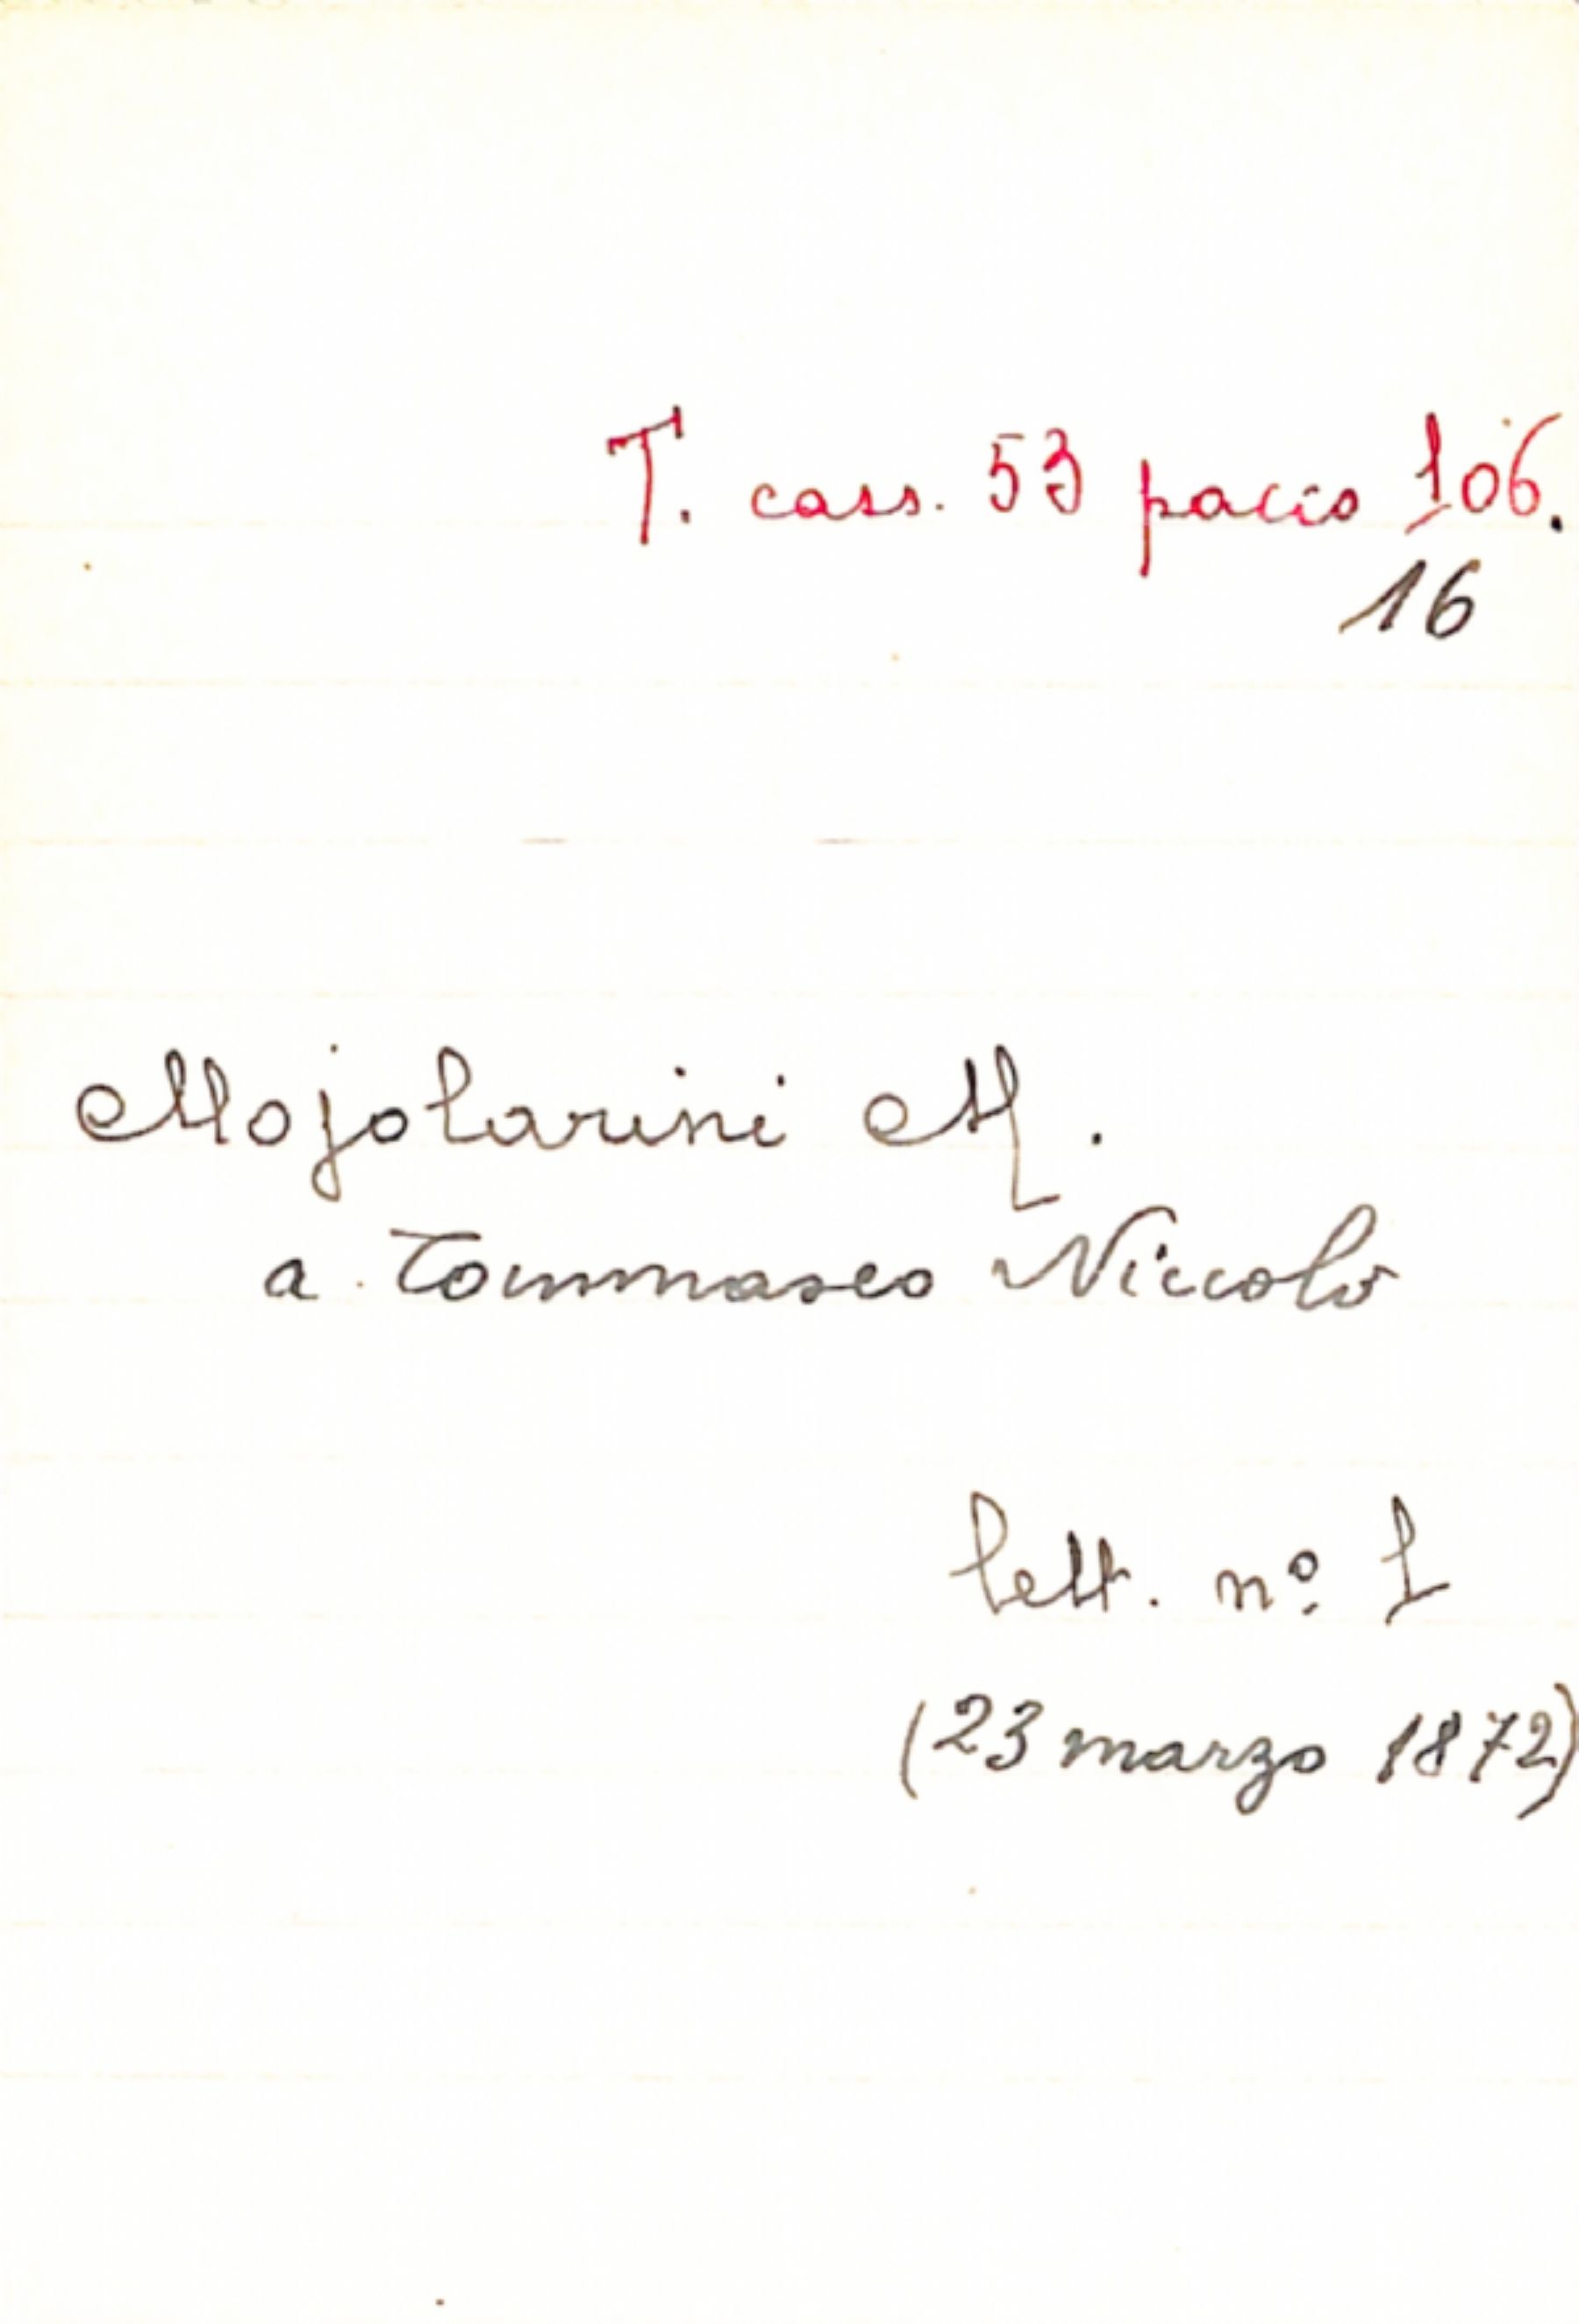 T. cass. 53 pacco 106.
16
Mojolarini M.
a Tommaseo Niccolò
lett. nº 1
(23 marzo 1872)